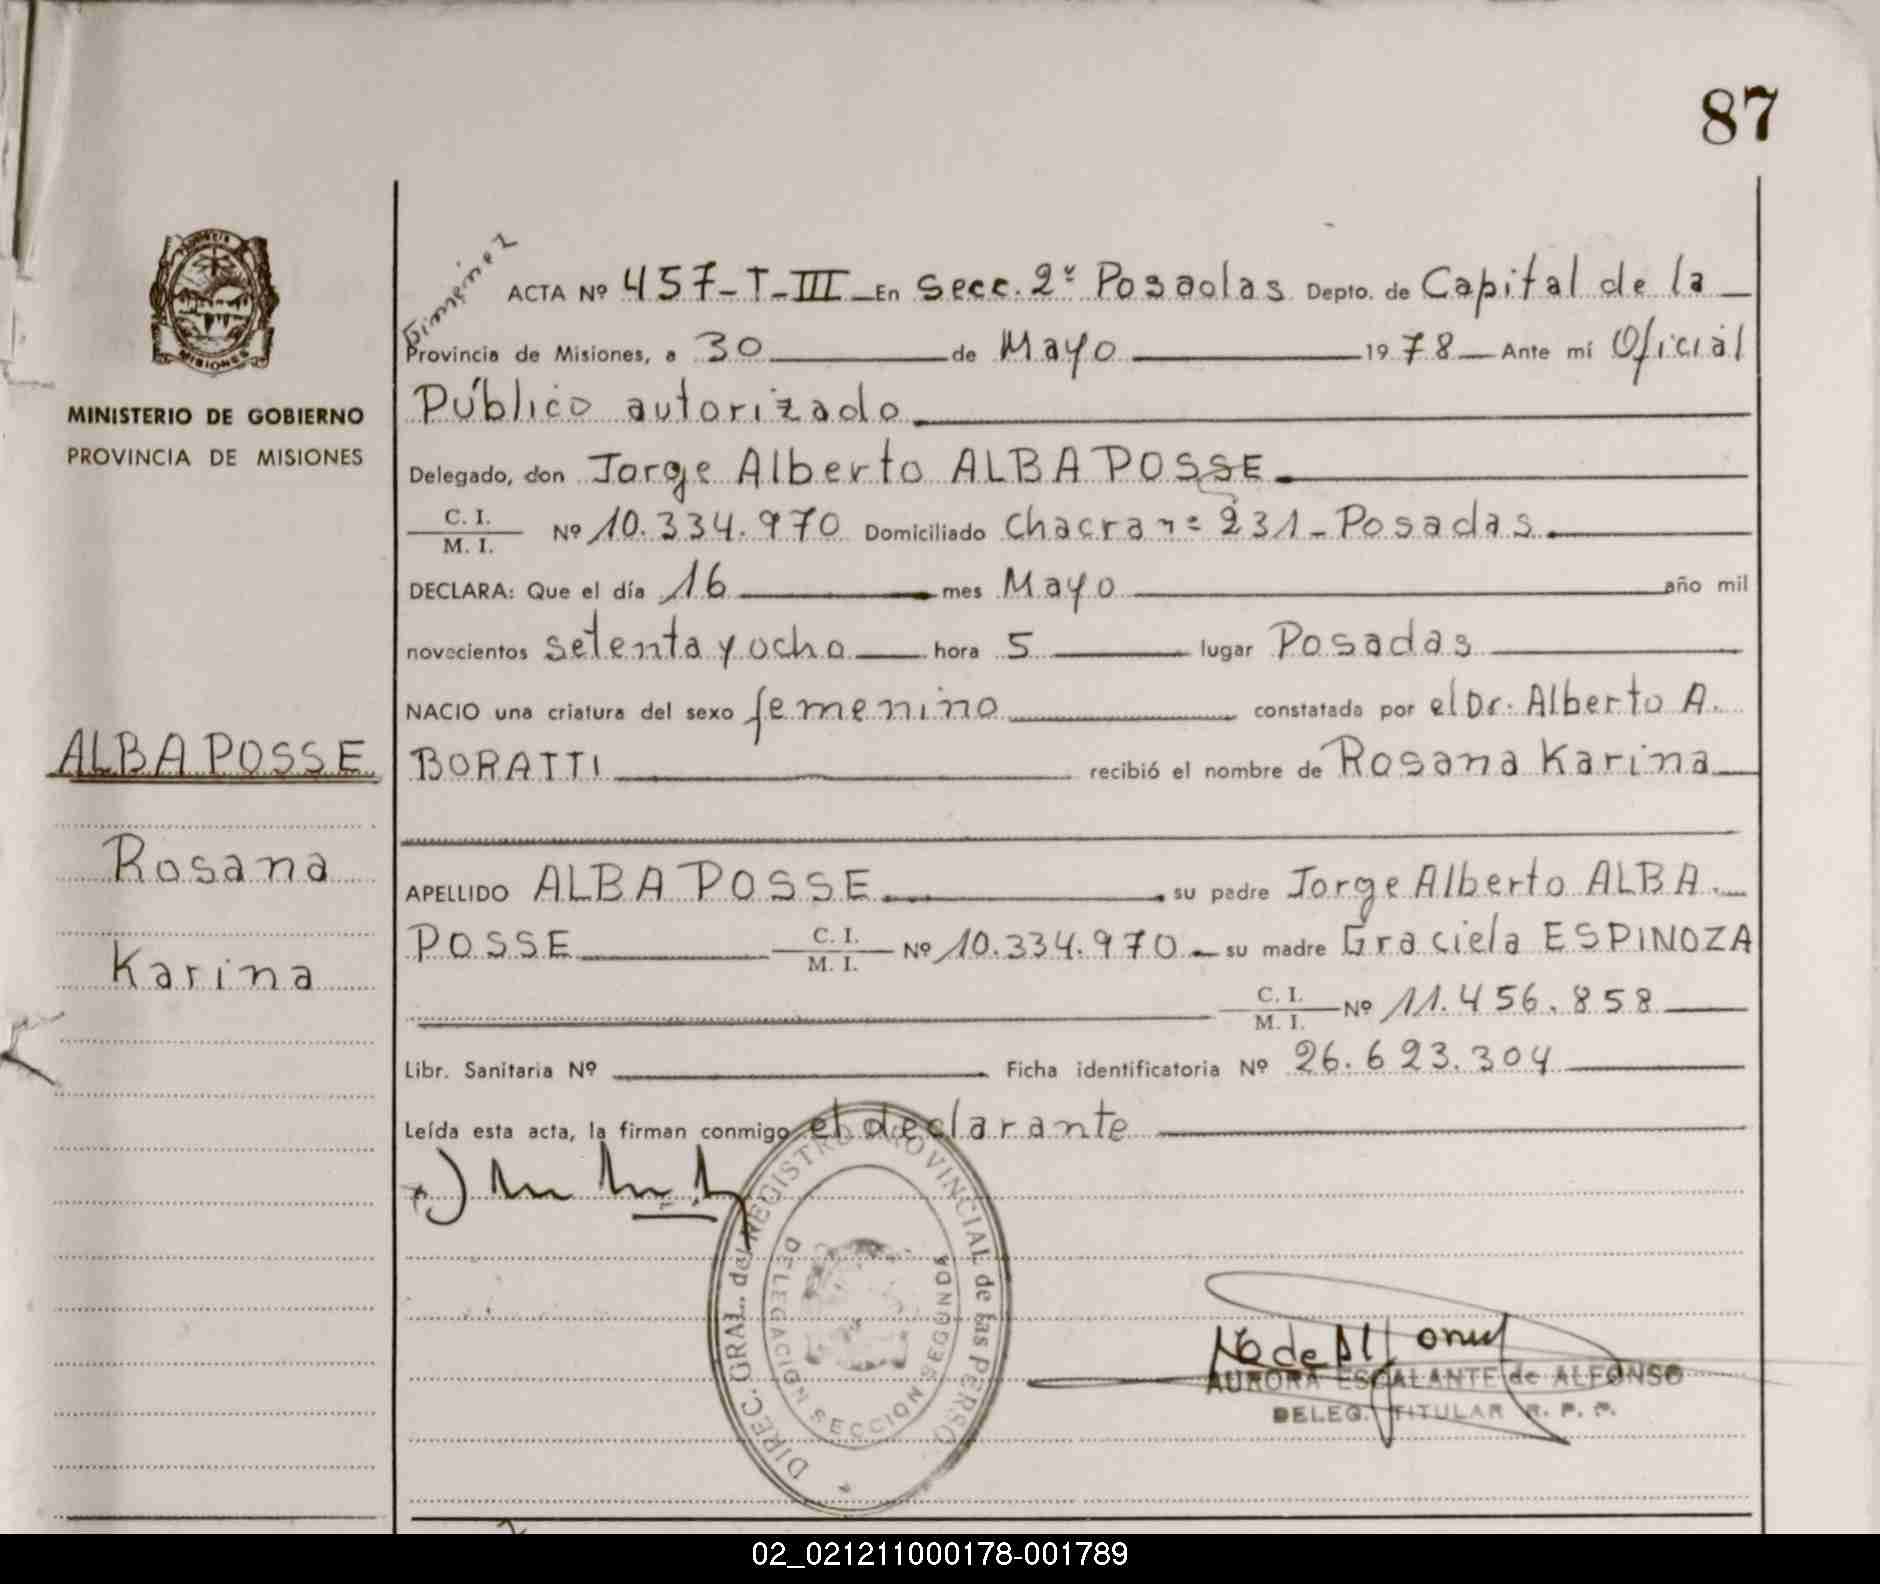 87
Gimenez
ACTA Nº 457-T-III En Secc. 2ª Posadas Depto. de Capital de la
Provincia de Misiones, a 30 de Mayo 1978 Ante mí Oficial
Público autorizado
Delegado, don Jorge Alberto ALBA POSSE
C. I.
M. I. Nº 10.334.970 Domiciliado Chacra nº 231 - Posadas
DECLARA: Que el día 16 mes Mayo año mil
novecientos setenta y ocho hora 5 lugar Posadas
NACIO una criatura del sexo femenino constatada por el Dr. Alberto A.
BORATTI recibió el nombre de Rosana Karina
APELLIDO ALBA POSSE su padre Jorge Alberto ALBA
POSSE C. I. M. I. Nº 10.334.970 su madre Graciela ESPINOZA
C. I. M. I. Nº 11.456.858
Libr. Sanitaria Nº Ficha identificatoria Nº 26.623.304
Leída esta acta, la firman conmigo el declarante
DIREC. GRAL. del REGISTRO PROVINCIAL de las PERSO
DELEGACION SECCION SEGUNDA
AURORA ESCALANTE de ALFONSO
DELEG. TITULAR R. P. P.
PROVINCIA
MISIONES
MINISTERIO DE GOBIERNO
PROVINCIA DE MISIONES
ALBA POSSE
Rosana
Karina
02_021211000178-001789